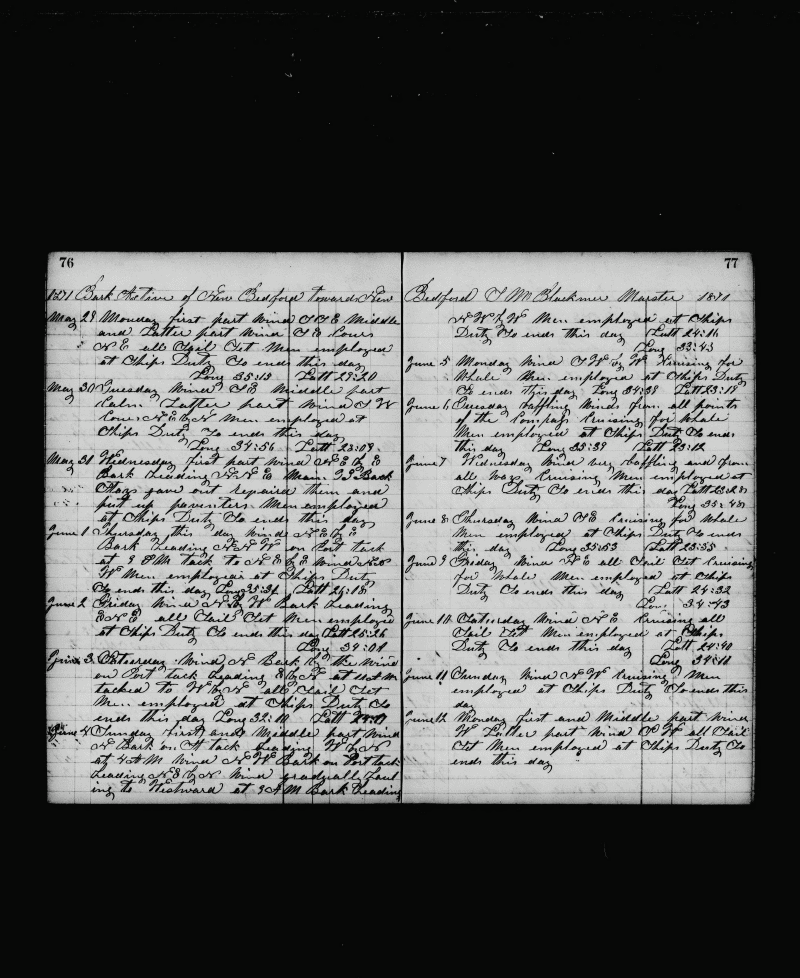 76
1871 Bark Active of New Bedford towards New
May 29 Monday first part Wind S S E Middle
and Latter part Wind S E Cours
N E all Sail Set Men employed
at Ships Duty So ends this day
Long 35:13 Latt 29:20
May 30 Tuesday Wind S E Middle part
Calm Latter part Wind S W
Cours N E by N Men employed at
Ships Duty So ends this day
Long 34:56 Latt 28:09
May 31 Wednesday first part Wind N E by E
Bark heading N N E Main Back
Stays gave out repaired them and
put up Men employed
at Ships Duty So ends this day
June 1 Thursday this day Wind N E by E
Bark heading N N W on Port tack
at 3 P M tack to N E by E Wind
W Men employed at Ships Duty
So ends this day Long 33:34 Latt 26:18
June 2 Friday Wind N by W Bark heading
E N E all Sail Set Men employed
at Ships Duty So ends this day Latt 25:26
Long 34:01
June 3 Saturday Wind N Bark by the Wind
on Port tack heading E by N at
tacked to W by N all Sail Set
Men employed at Ships Duty So
ends this day Long 32:11 Latt
June 4 Sunday first and Middle part Wind
N Bark on St tack heading W by N
at 4 A M Wind N W Bark on Port tack
heading N E by N Wind gradually haul
ing to Westward at 9 A M Bark heading
77
Bedford T M Blackmer Marster 1871
N W by W Men employed at Ships
Duty So ends this day Latt 24:16
Long 33:43
June 5 Monday Wind S W by W Cruising for
Whale Men employed at Ships Duty
So ends this day Long 34:38 Latt 23:19
June 6 Tuesday baffling Winds from all points
of the Compass Cruising for Whale
Men employed at Ships Duty So ends
this day Long 35:39 Latt 23:12
June 7 Wednesday Wind very baffling and from
all ways Cruising Men employed at
Ships Duty So ends this day Latt 23:28
Long 35:48
June 8 Thursday Wind S E Cruising for Whale
Men employed at Ships Duty So ends
this day Long 35:53 Latt 23:55
June 9 Friday Wind N E all Sail Set Cruising
for Whale Men employed at Ships
Duty So ends this day Latt 24:32
Long 34:43
June 10 Saturday Wind N E Cruising all
Sail Set Men employed at Ships
Duty So ends this day Latt 24:40
Long 34:11
June 11 Sunday Wind N W Cruising Men
employed at Ships Duty So ends this
day
June 12 Monday first and Middle part Wind
W Latter part Wind S W all Sail
Set Men employed at Ships Duty So
ends this day